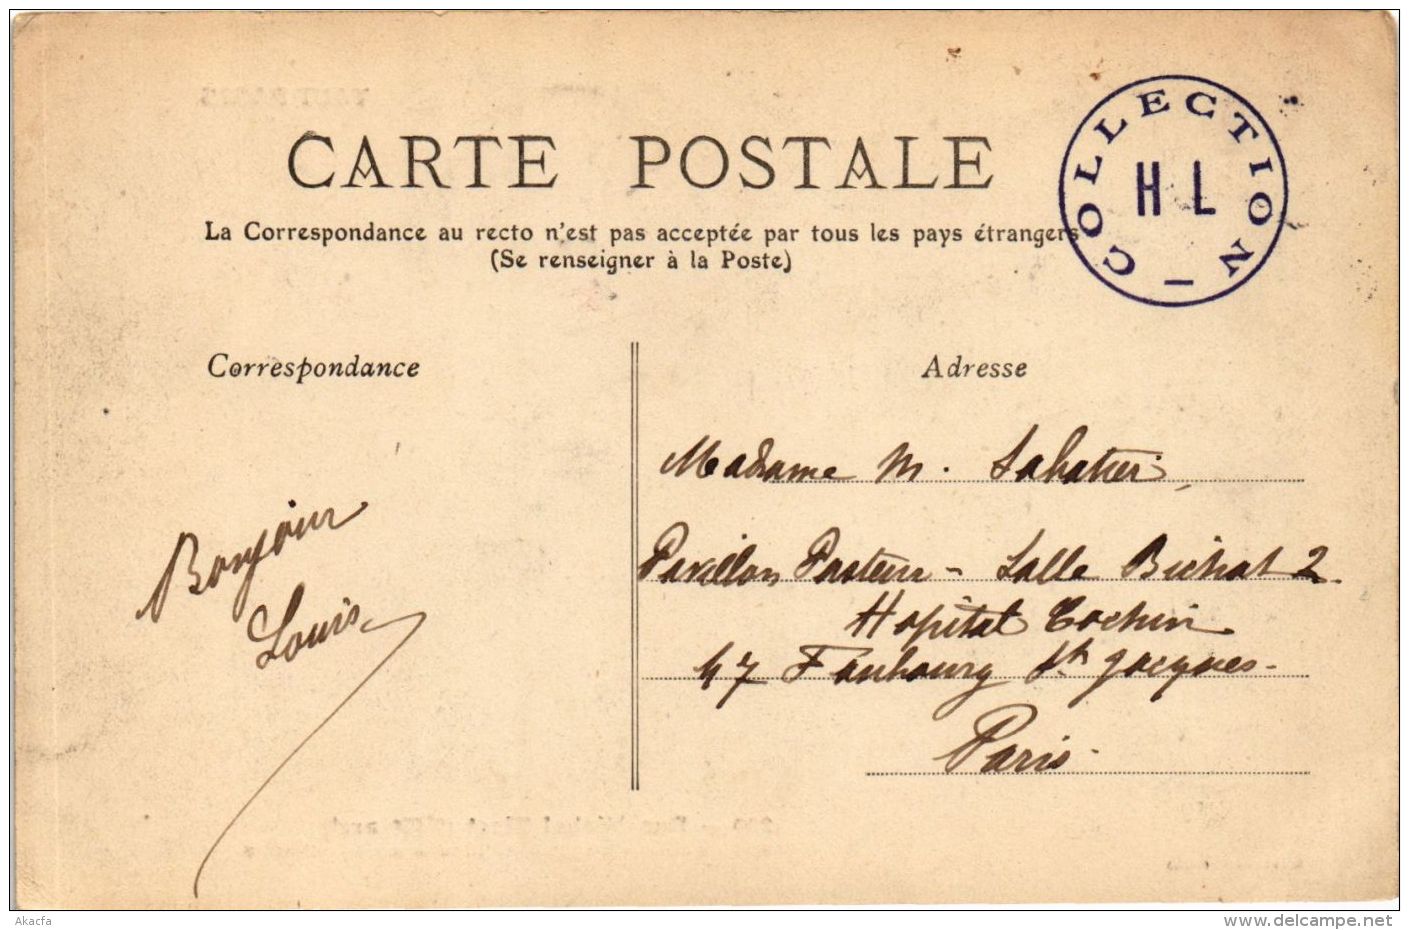 CARTE POSTALE
COLLECTION
H L
La Correspondance au recto n'est pas acceptée par tous les pays étrangers
(Se renseigner à la Poste)
Correspondance
Adresse
Bonjour
Louis
Madame M. Sabatier,
Pavillon Pasteur - Salle Bichat 2.
Hopital Cochin
47 Faubourg St Jacques -
Paris.
Akacfa
delcampe.net